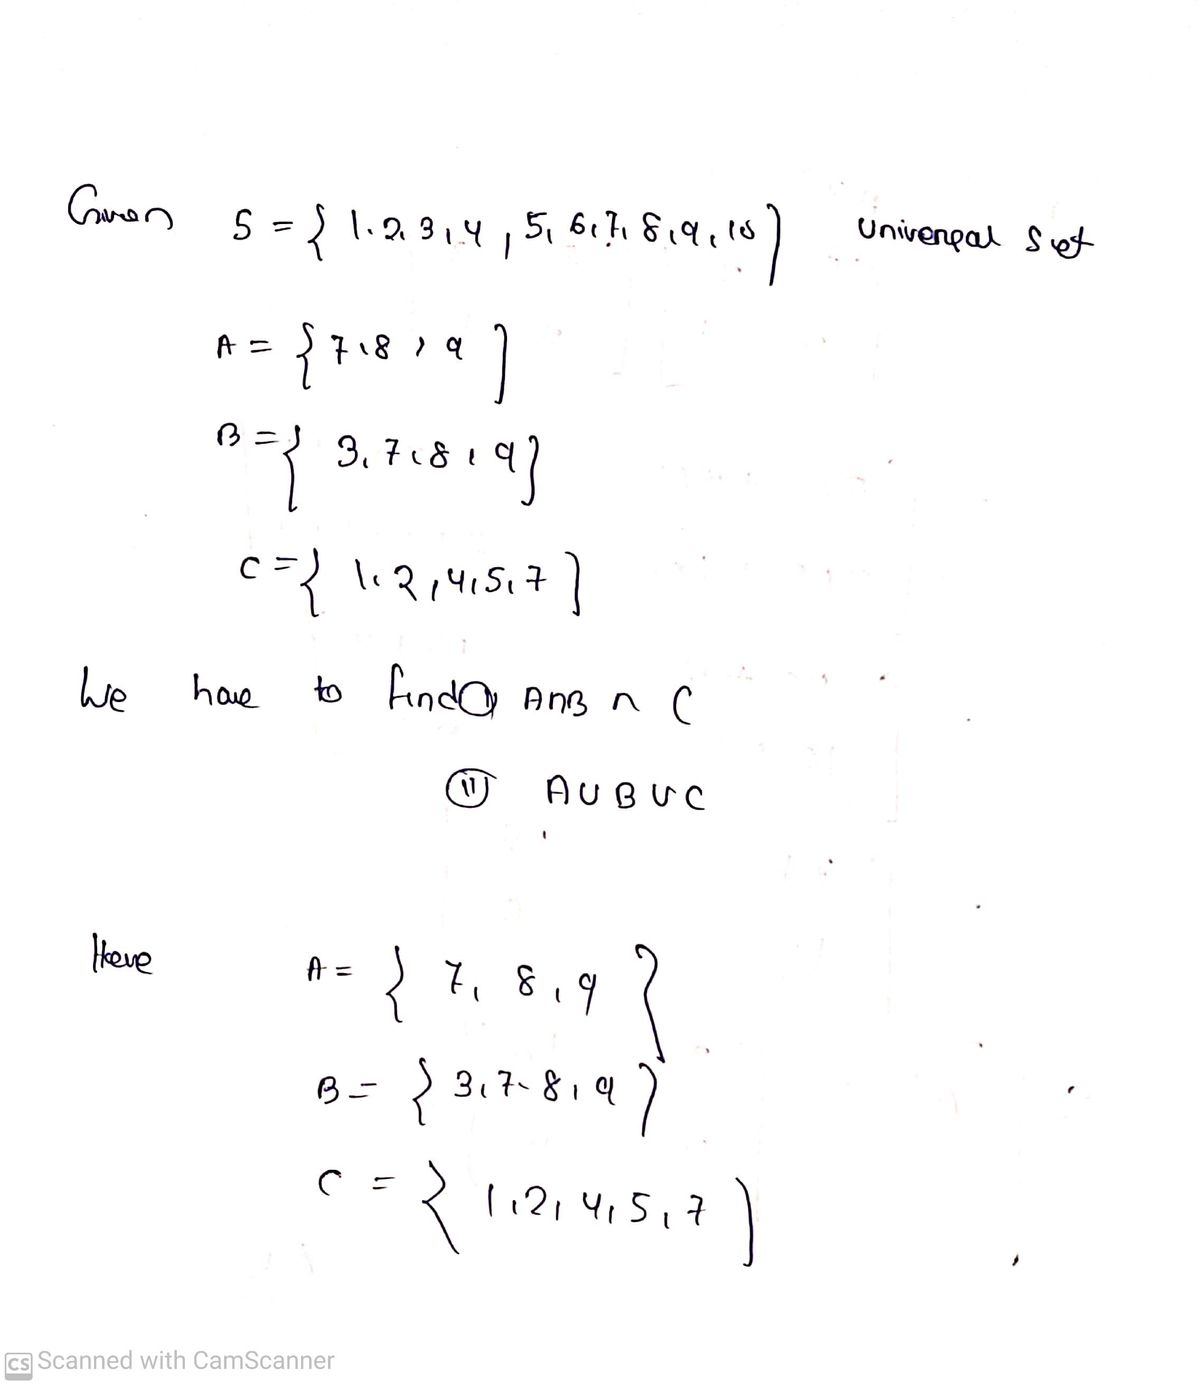 Given S = { 1, 2, 3, 4, 5, 6, 7, 8, 9, 10 } universal set
A = { 7, 8, 9 }
B = { 3, 7, 8, 9 }
C = { 1, 2, 4, 5, 7 }
We have to find (i) A∩B ∩ C
(ii) A ∪ B ∪ C
Here A = { 7, 8, 9 }
B = { 3, 7, 8, 9 }
C = { 1, 2, 4, 5, 7 }
CS Scanned with CamScanner